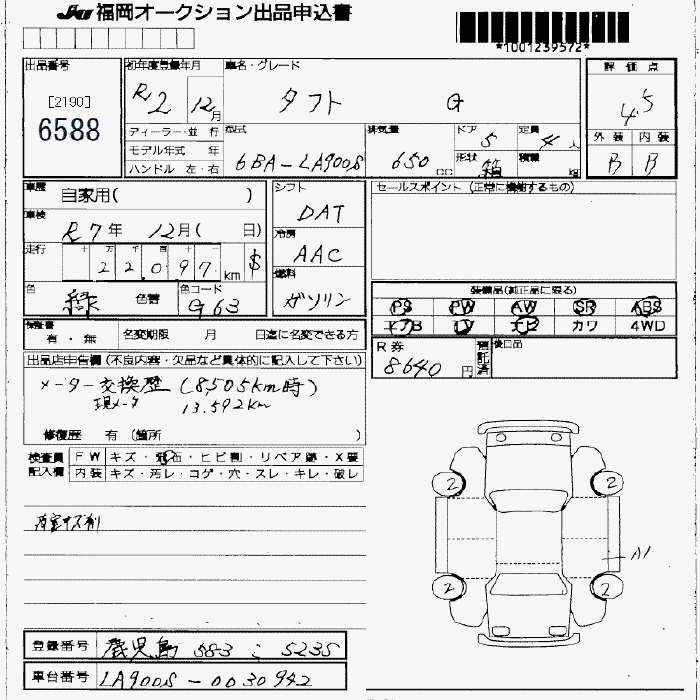 JU 福岡オークション出品申込書
*1001239572*
出品番号
[2190]
6588
初年度登録年月
R2 12月
車名・グレード
タフト G
評価点
4.5
外装 内装
B B
ディーラー・並行
モデル年式 年
ハンドル 左・右
型式
6BA-LA900S
排気量
650 cc
ドア
5
形状
箱
定員
4人
積載
kg
車歴
自家用( )
車検
R7年 12月( 日)
走行
十 万 千 百 十
22,097 km $
色
緑
色替
色コード
G63
シフト
DAT
冷房
AAC
燃料
ガソリン
セールスポイント (正常に機能するもの)
装備品(純正品に限る)
PS PW AW SR ABS
エアB TV ナビ カワ 4WD
保証書
有・無
名変期限 月 日迄に名変できる方
R券
8640円
預託済
後日品
出品店申告欄(不良内容・欠品など具体的に記入して下さい)
メーター交換歴 (8,505km時)
現メータ 13,592km
修復歴 有 (箇所 )
検査員記入欄
FW キズ・飛石・ヒビ割・リペア跡・X要
内装 キズ・汚レ・コゲ・穴・スレ・キレ・破レ
荷室キズ有リ
2 2
A1
2 2
登録番号 鹿児島 583 : 5235
車台番号 LA900S-0030942